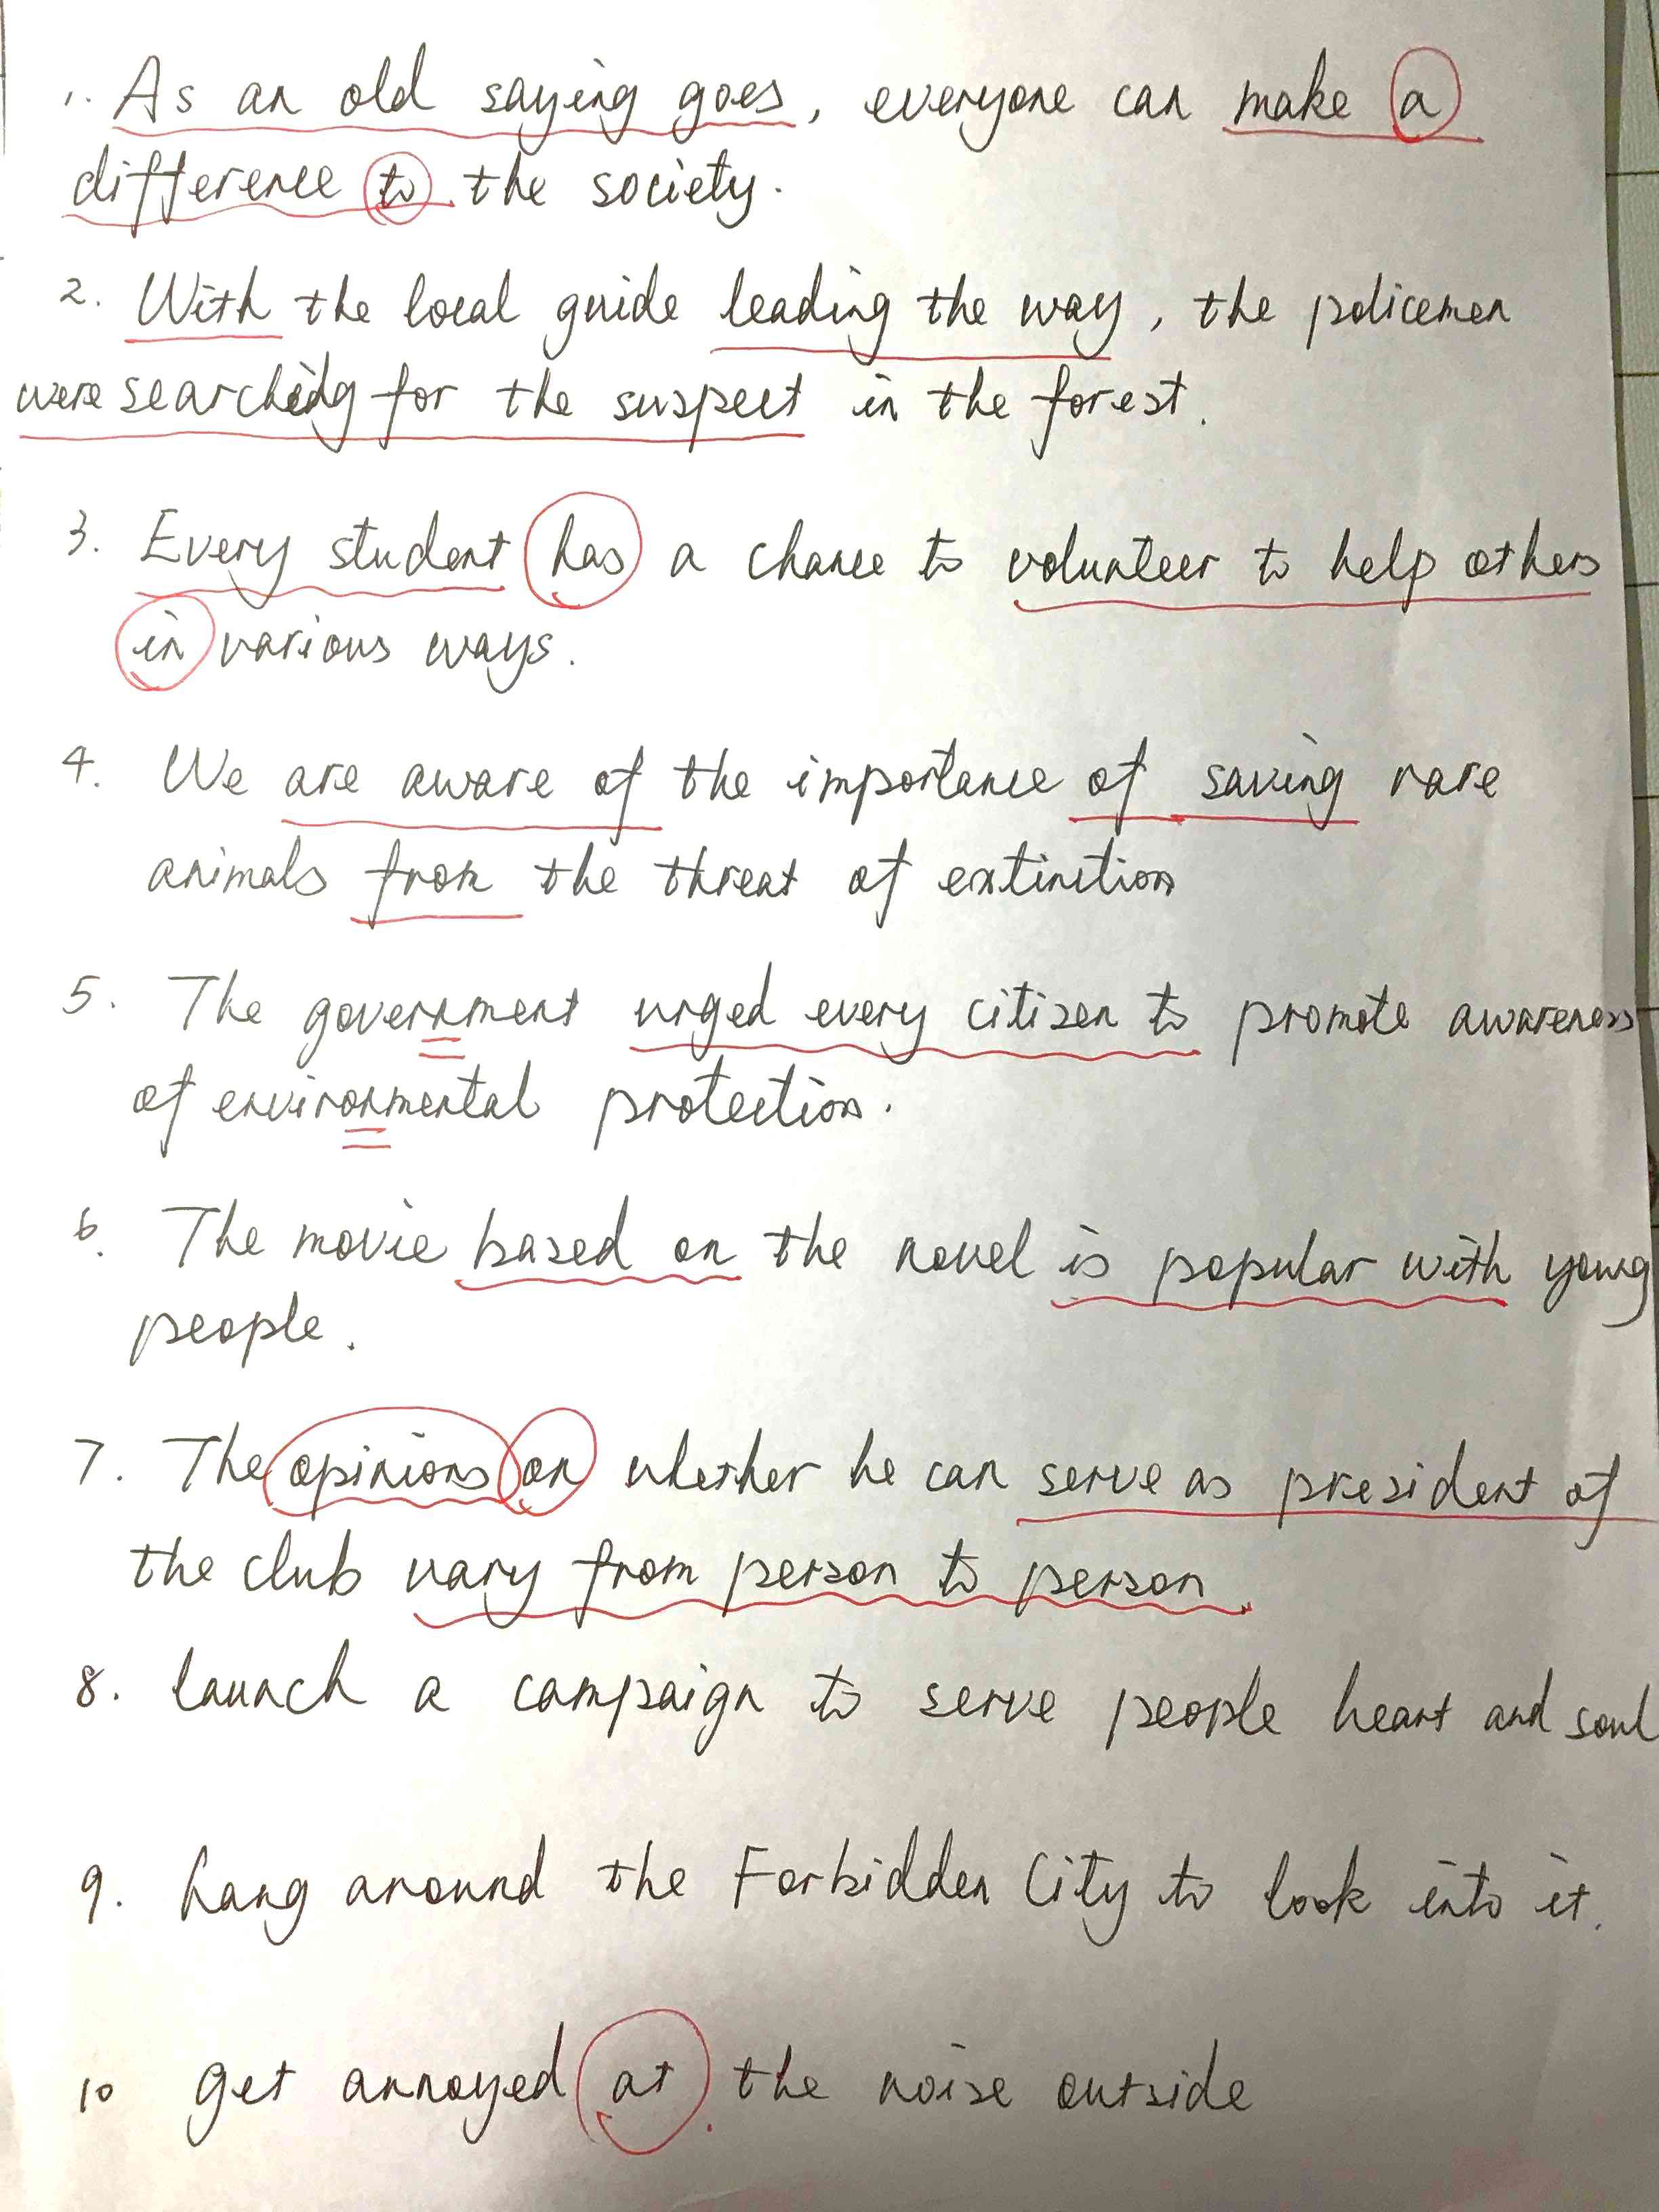 1. As an old saying goes, everyone can make a
difference to the society.
2. With the local guide leading the way, the policemen
were searching for the suspect in the forest.
3. Every student has a chance to volunteer to help others
in various ways.
4. We are aware of the importance of saving rare
animals from the threat of extinction
5. The government urged every citizen to promote awareness
of environmental protection.
6. The movie based on the novel is popular with young
people.
7. The opinions on whether he can serve as president of
the club vary from person to person.
8. launch a campaign to serve people heart and soul
9. hang around the Forbidden City to look into it.
10 get annoyed at the noise outside